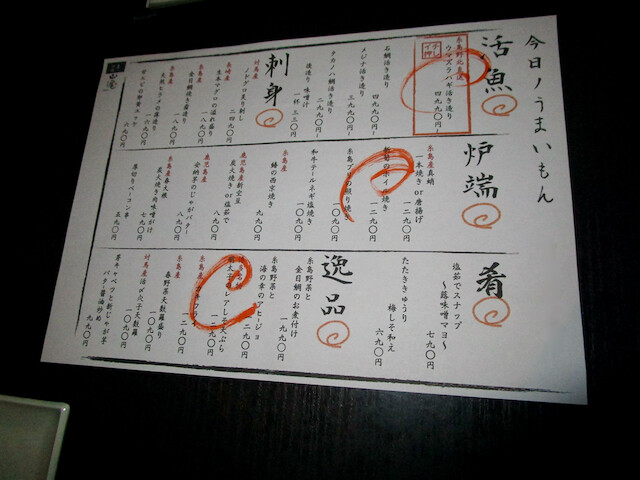 今日ノうまいもん
活魚
イチ押
糸島野北直送
ウマヅラハギ活き造り
四九九〇円~
石鯛活き造り
四九九〇円~
メジナ活き造り
三九九〇円~
タカノハ鯛活き造り
二九九〇円~
後造り 味噌汁
一杯 三二〇円
刺身
対馬産
ノドグロ炙り刺し
二四九〇円
長崎産
生本マグロの塩れ盛り
一八九〇円
糸島産
金目鯛焼き霜造り
一八九〇円
糸島産
天然ヒラメの薄造り
一六九〇円
甘エビの砂資ユッケ
九九〇円
炉端
糸島産真蛸
一本焼き or 唐揚げ
一二九〇円
ホイル焼き
一二九〇円
糸島ブリの照り焼き
一〇九〇円
和牛テールネギ塩焼き
一〇九〇円
糸島産
鰆の西京焼き
九九〇円
鹿児島産新空豆
炭火焼き or 塩茹で
八九〇円
鹿児島産
安納芋のじゃがバター
八九〇円
糸島産春大根
炭火焼き肉味噌がけ
七九〇円
厚切りベーコン串
五九〇円
肴
塩茹でスナップ
~蕗味噌マヨ~
七九〇円
たたききゅうり
梅しそ和え
六九〇円
逸品
糸島野菜と
金目鯛のお煮付け
一九九〇円
糸島野菜と
海の幸のアヒージョ
一二九〇円
明太子のレアしそ天ぷら
一二九〇円
糸島産
カキフライ
一二九〇円
糸島産
春野菜天麩羅盛り
一〇九〇円
対馬産活〆穴子天麩羅
一〇九〇円
芽キャベツと新じゃが芋
バター醤油炒め
九九〇円